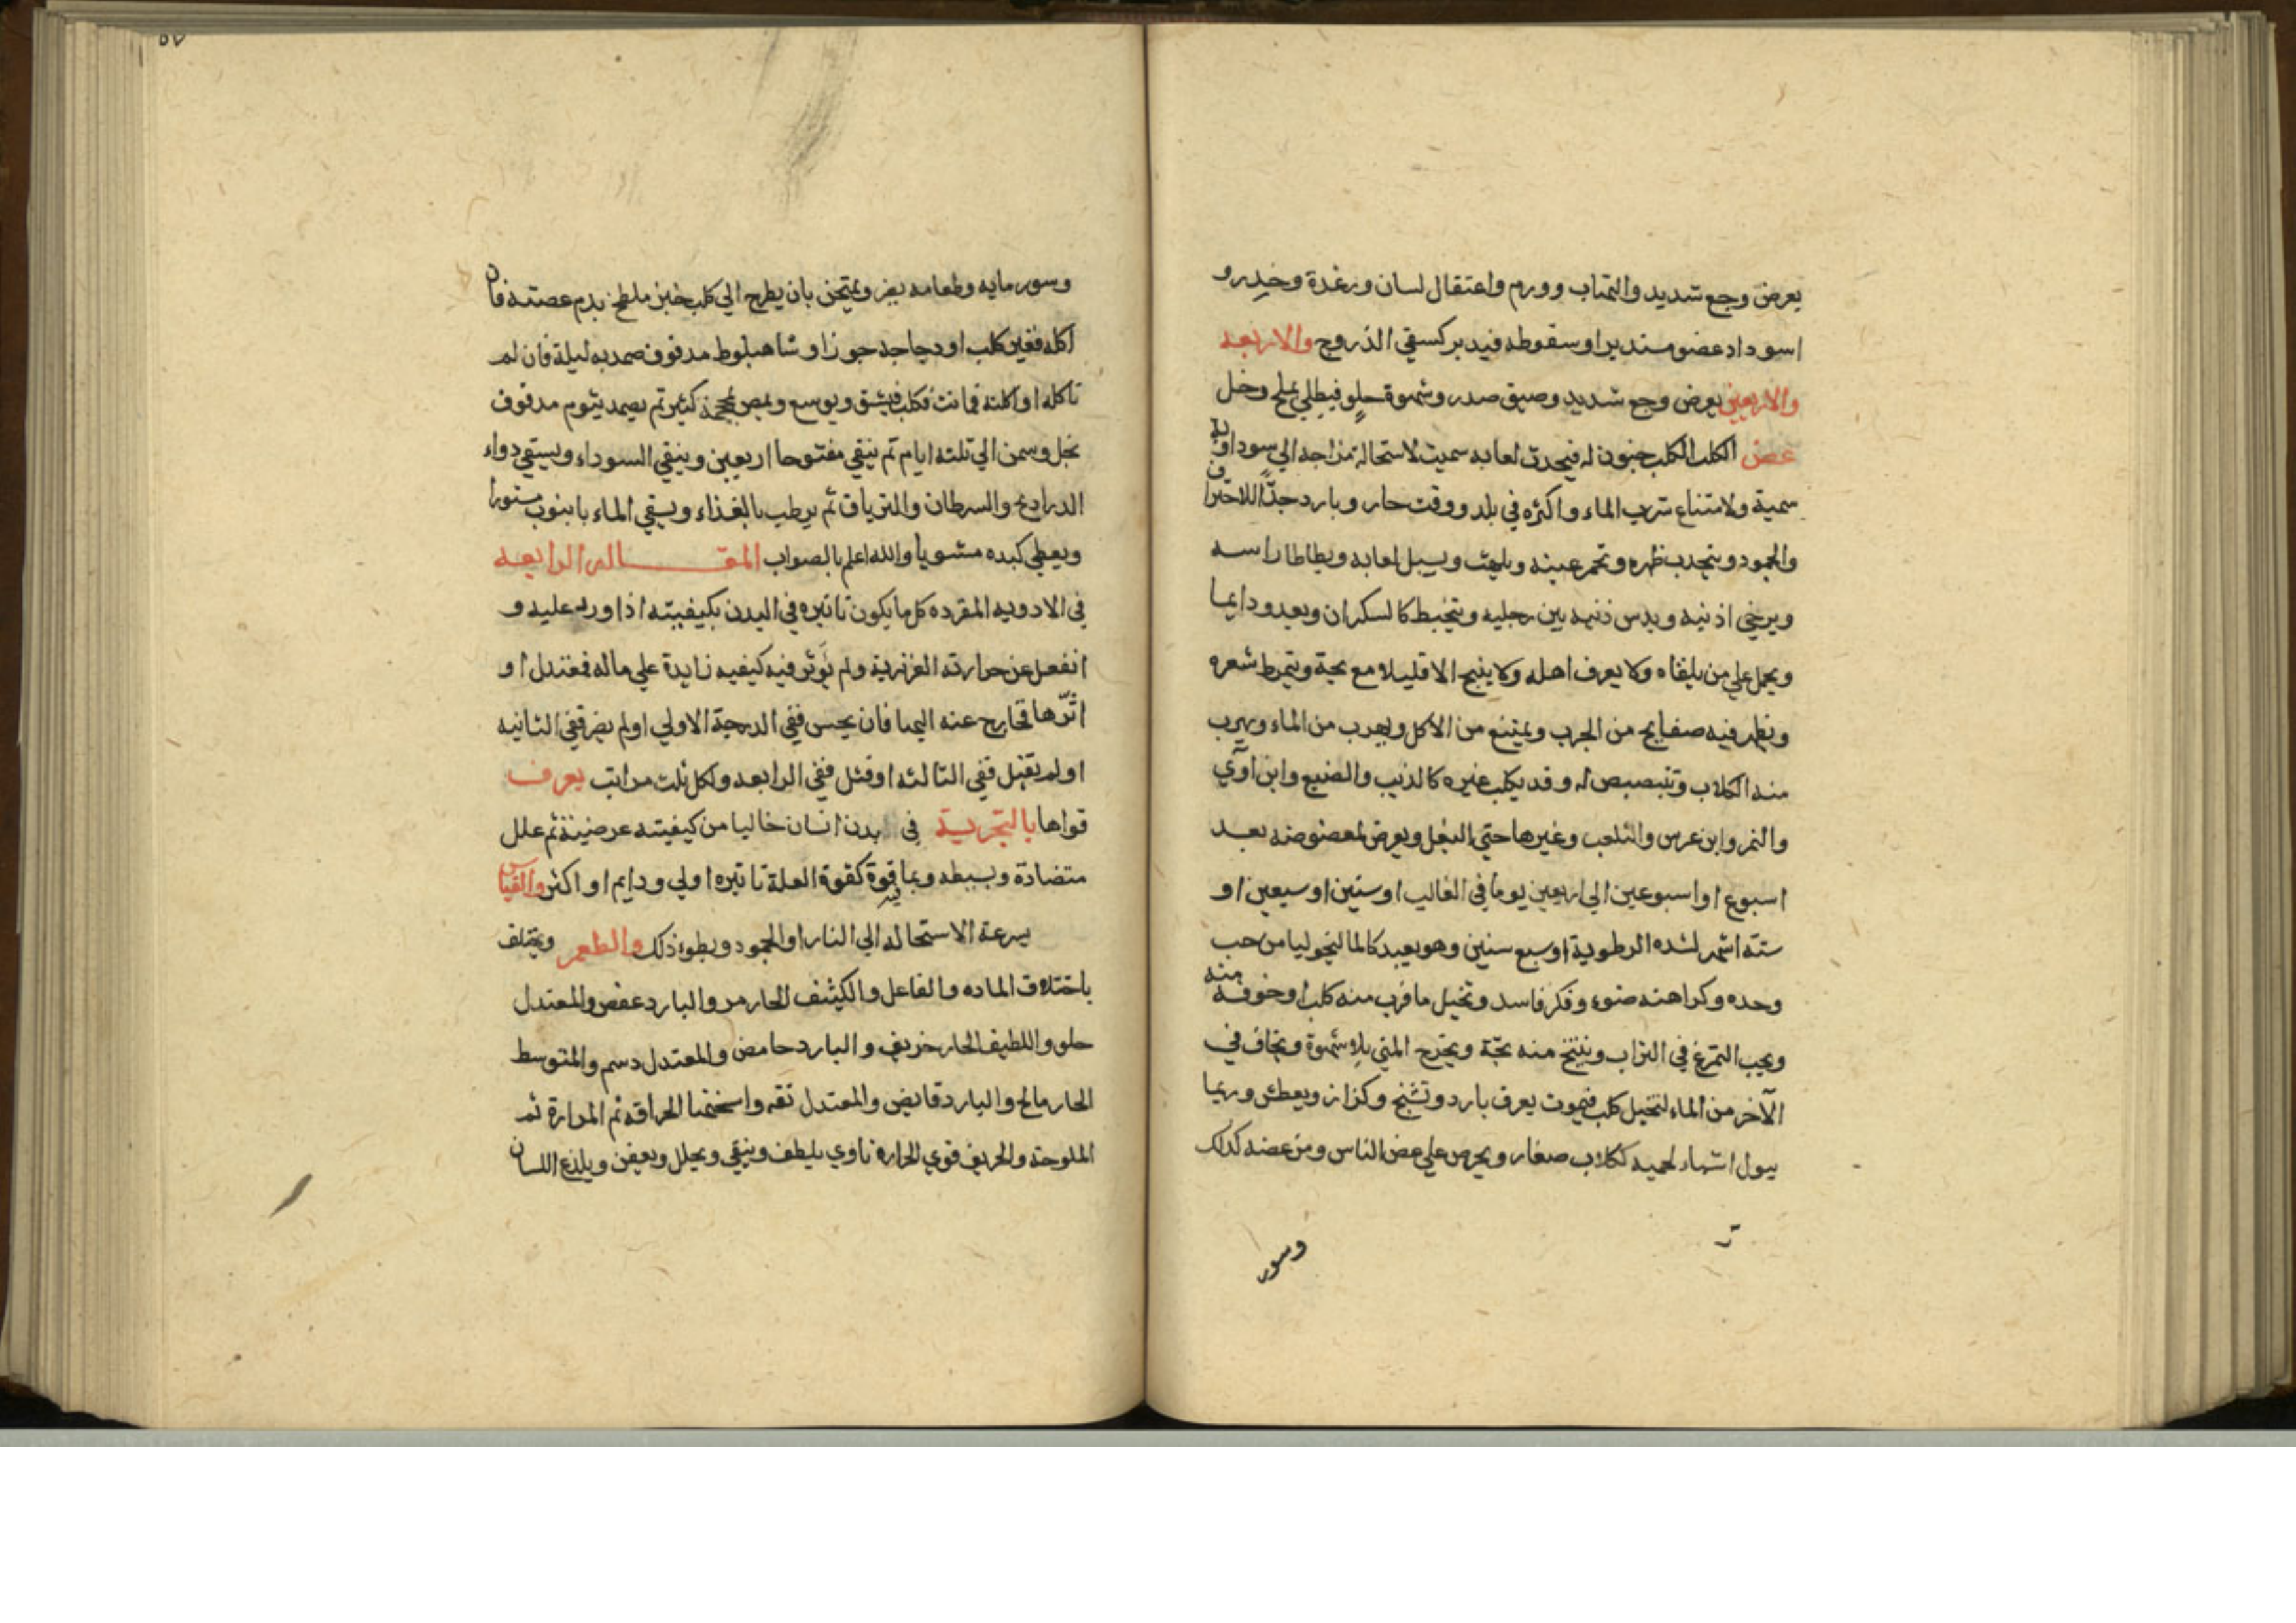 يعرض وجع شديد والتهاب وورم واعتقال لسان ورعدة وخدر و
اسوداد عضو مستدير او سقوطه فيدبر كسقي الذروح والاربعه
والاربعين يعرض وجع شديد وضيق صدر وشهوة حلو فيطلي بملح وخل
عض الكلب الكلب جنون له فيحدث لعابه سميت لاستحالة مزاجه الي سوداوية
سمية ولامتناع شرب الماء واكثره في بلد ووقت حار وبارد جدا للاحتراق
والجمود ويتحدب ظهره وتحمر عينه ويلهث ويسيل لعابه ويطاطا راسه
ويرخي اذنيه ويدس ذنبه بين رجليه ويتخبط كالسكران ويعدو دايما
ويحمل علي من يلقاه ولا يعرف اهله ولا ينبح الا قليلا مع بحة ويتمرط شعره
ويظهر فيه صفايح من الجرب ويمتنع من الاكل ويهرب من الماء ويهرب
منه الكلاب وتبصبص له وقد يكلب غيره كالذيب والضبع وابن آوي
والنمر وابن عرس والثعلب وغيرها حتي البغل ويعرض لمعضوضه بعد
اسبوع او اسبوعين الي اربعين يوما في الغالب او ستين او سبعين او
ستة اشهر لشده الرطوبة او سبع سنين وهو بعيد كالماليخوليا من حب
وحده وكراهته ضوء وفكر فاسد وتخيل ما قرب منه كلبا وخوفه منه
ويحب التمرغ في التراب وينتج منه بحة ويخرج المني بلا شهوة ويخاف في
الآخر من الماء لتخيل كلب فيموت بعرق بارد وتشنج وكزاز ويعطش وربما
يبول اشباه لحميه ككلاب صغار ويحرص علي عض الناس ومن عضه كذلك
وسور
٥٧
وسور مايه وطعامه يضر ويمتحن بان يطرح الي كلب خبز ملطخ بدم عضته فان
اكله فغير كلب او دجاجة جوزا وشاهبلوط مدقوق ضمد به ليلة فان لم
تاكله او اكلته فماتت فكلب فيشق ويوسع ويمص بمحجمة كثير ثم يضمد بثوم مدقوق
بخل وسمن الي ثلثه ايام ثم يبقي مفتوحا اربعين وينقي السوداء ويسقي دواء
الدراريح والسرطان والترياق ثم يرطب بالغذاء ويسقي الماء بانبوب مستورا
ويعطي كبده مشويا والله اعلم بالصواب المقاله الرابعه
في الادويه المفرده كل ما يكون تاثيره في البدن بكيفيته اذا ورد عليه و
انفعل عن حرارته الغزيرية ولم يؤثر فيه كيفيه زايدة علي ماله فمعتدل او
اثرها فخارج عنه اليها فان يحس ففي الدرجة الاولي او لم يضر ففي الثانيه
او لم يقتل ففي الثالثه او قتل ففي الرابعه ولكل ثلث مراتب يعرف
قواها بالتجربة في بدن انسان خاليا من كيفيته عرضية ثم علل
متضادة وبسيطه وبما قوة كقوة العلة تاثيره اولي ودايم او اكثر والقياس
بسرعة الاستحاله الي النار او الجمود وبطوء ذلك والطعم ويختلف
باختلاف الماده والفاعل والكيثف الحار مر والبارد عفص والمعتدل
حلو واللطيف الحار حريف والبارد حامض والمعتدل دسم والمتوسط
الحار مالح والبارد قابض والمعتدل تفه واسخنها الحرافه ثم المرارة ثم
الملوحة والحريف قوي الحرارة ناري يلطف وينقي ويحلل ويعفن ويلذع اللسان